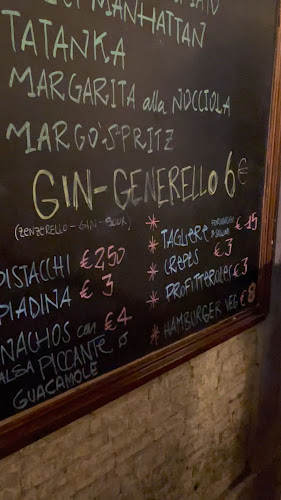 MANHATTAN
TATANKA
MARGARITA alla NOCCIOLA
MARGO'SPRITZ
GIN-GENERELLO 6€
(ZENZERELLO-GIN-SOUR)
PISTACCHI €2,50
PIADINA €3
NACHOS con €4
SALSA PICCANTE O
GUACAMOLE
* TAGLIERE FORMAGGI E SALUMI €15
* CREPES €3
* PROFITTEROLES €3
* HAMBURGER VEG €8